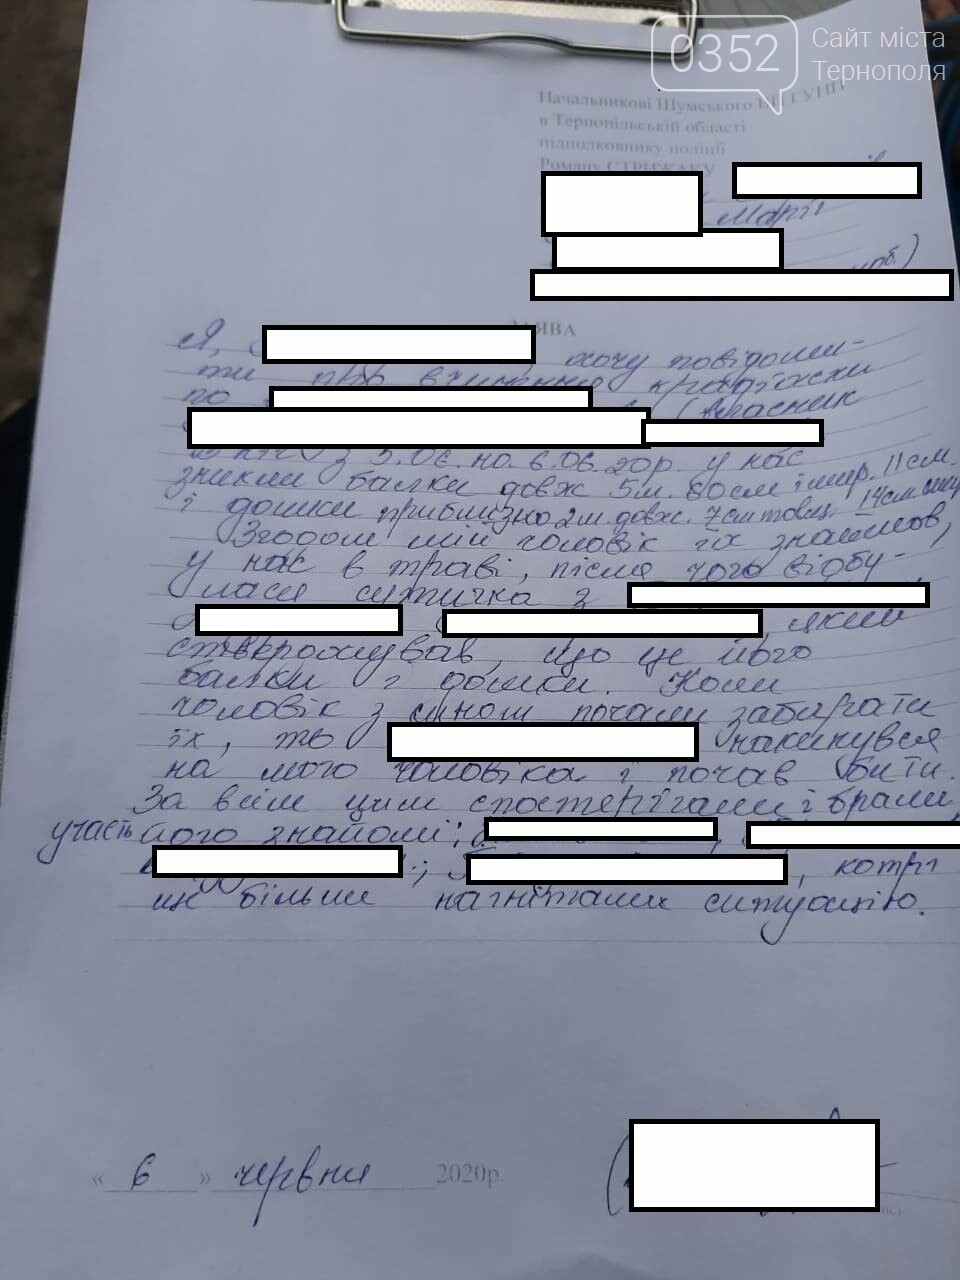 0352
Сайт міста
Тернополя
Начальникові Шумського ВП ГУНП
в Тернопільській області
підполковнику поліції
Роману СТРИЖАКУ
Марії
ЗАЯВА
Я, хочу повідоми-
ти про вчинення крадіжки
по (власник
з 5.06. на 6.06.20р. у нас
зникли балки довж 5м. 80см і шир. 11см.
і дошки приблизно 2м. довж. 7см товщ. 14см шир
Згодом мій чоловік їх знайшов,
у нас в траві, після чого відбу-
лася сутичка з
, який
стверджував, що це його
балки і дошки. Коли
чоловік з сином почали забирати
їх, то накинувся
на мого чоловіка і почав бити.
За всім цим спостерігали і брали
участь його знайомі:
; , котрі
ще більше нагнітали ситуацію.
« 6 » червня 2020р.